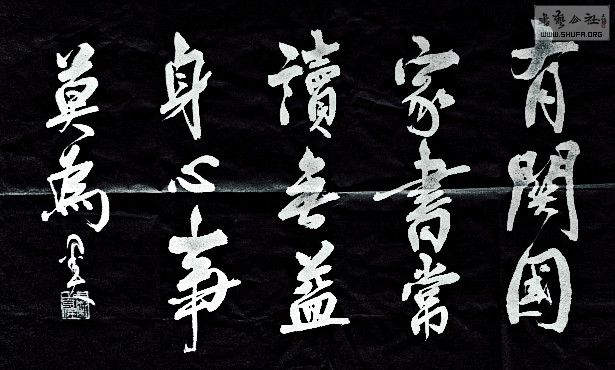 有關國
家書常
讀無益
身心事
莫為
書藝公社
WWW.SHUFA.ORG